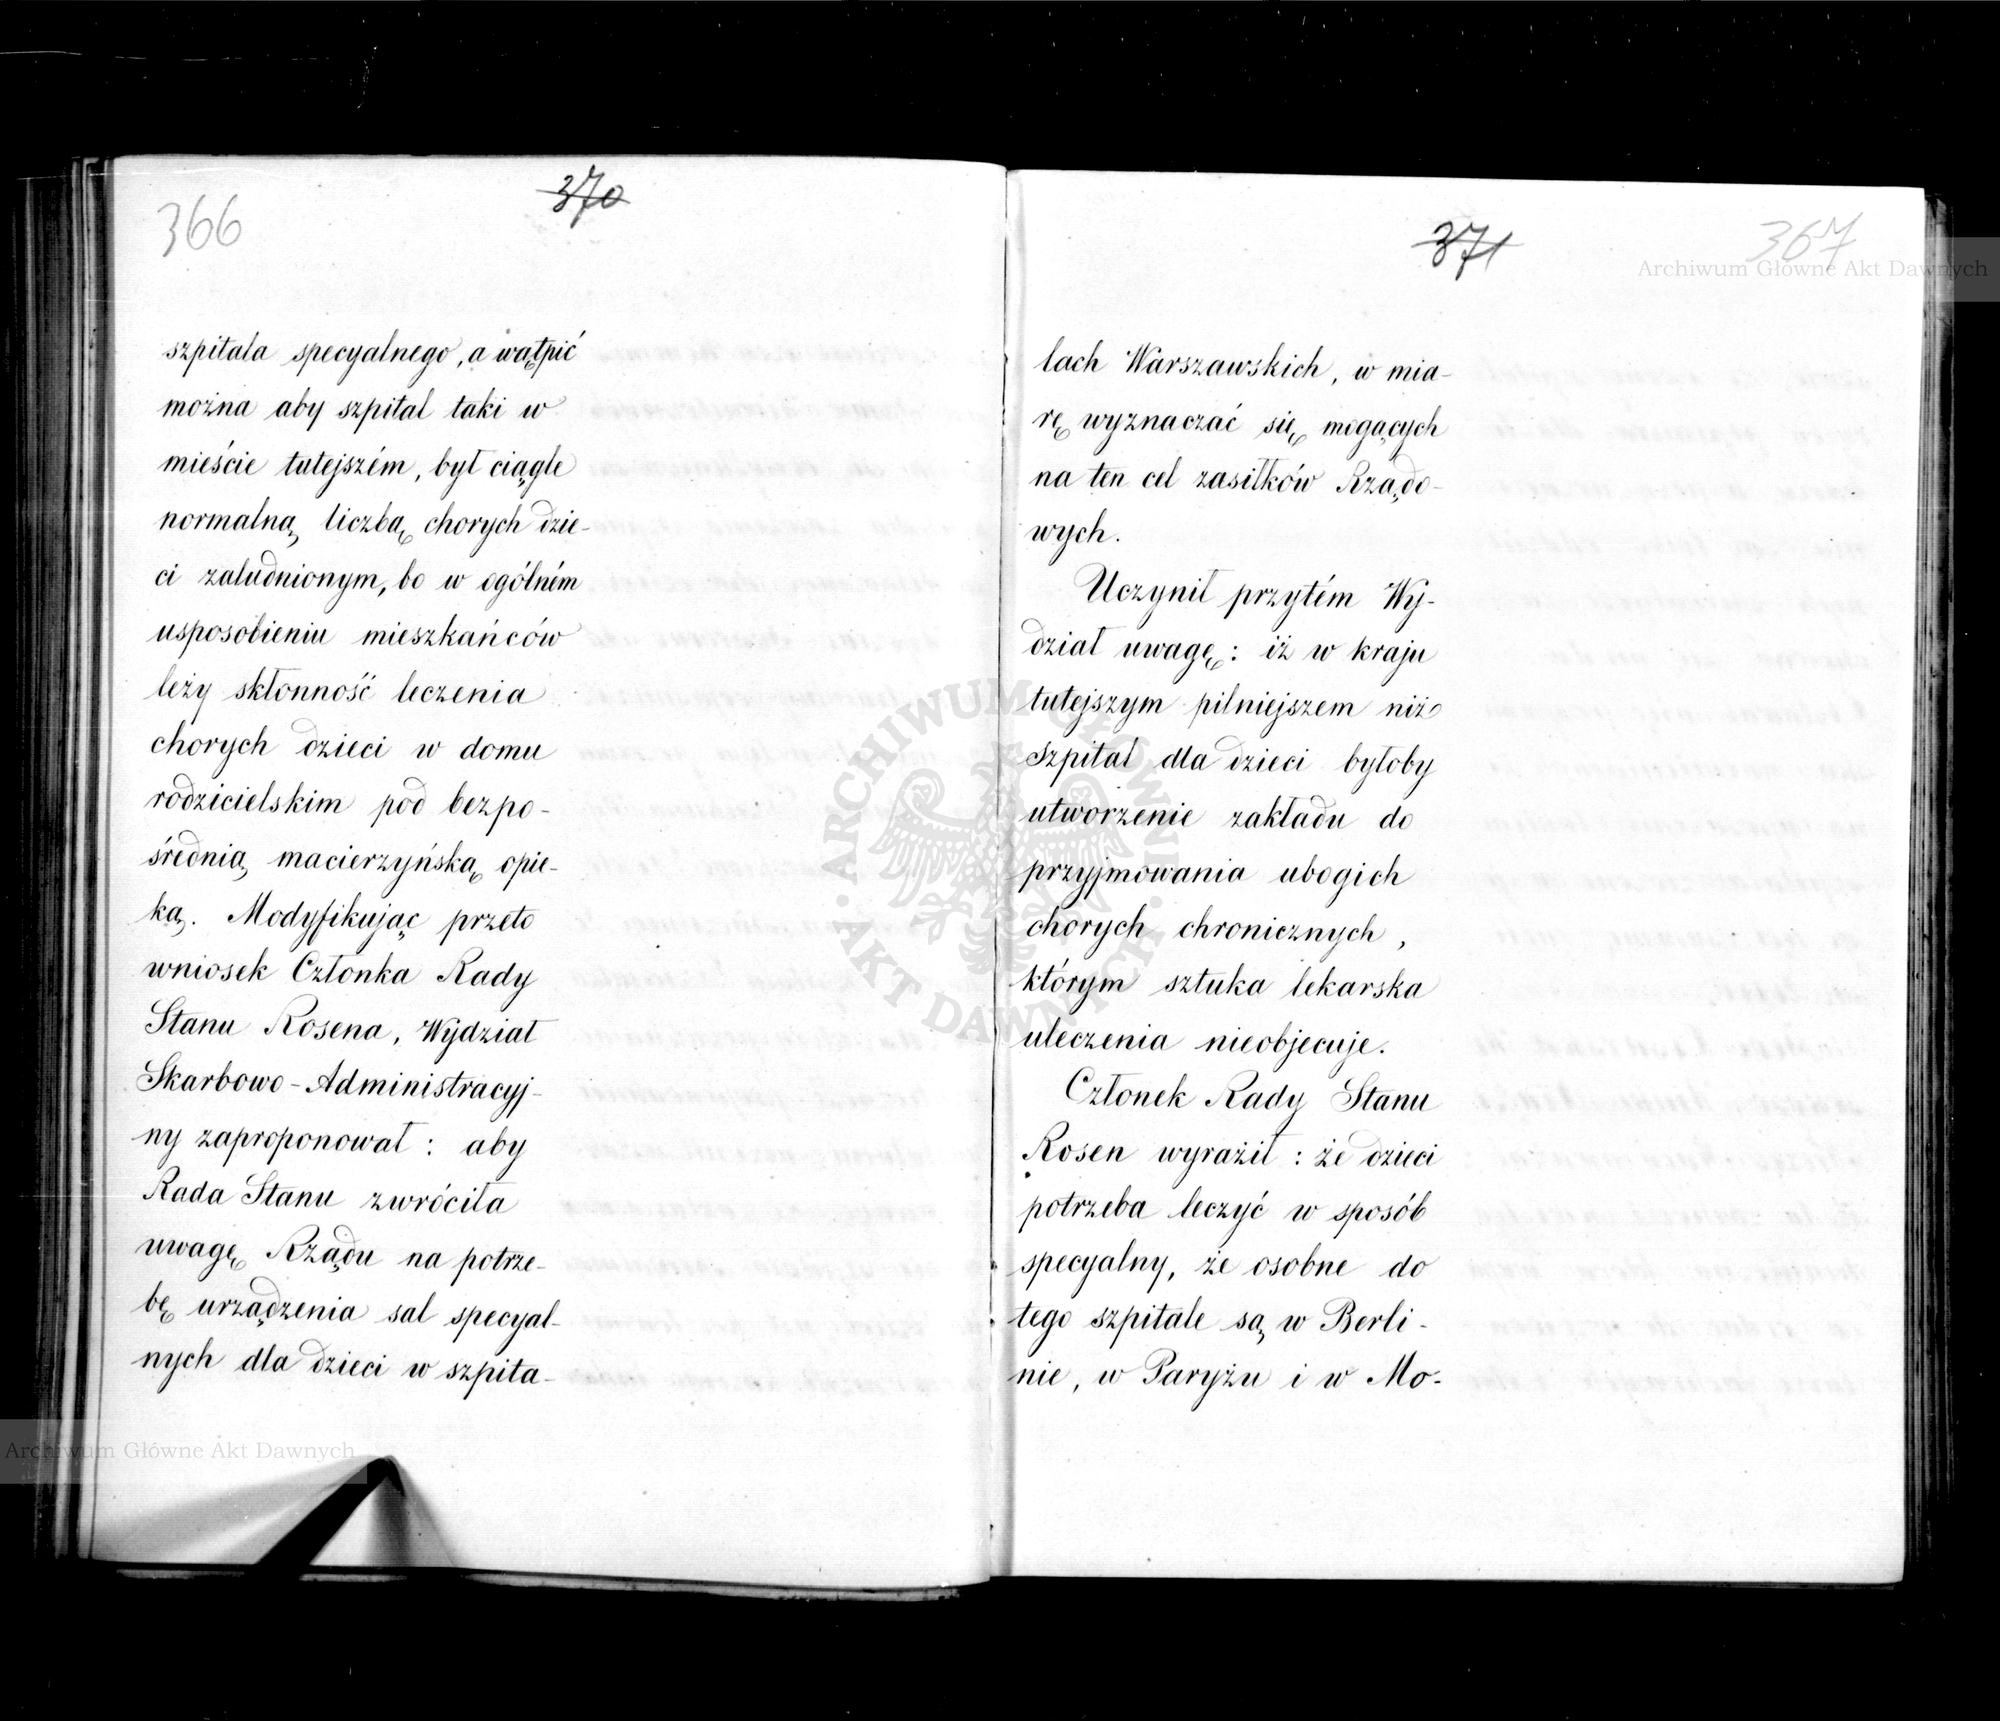 366
370
szpitala specyalnego, a wątpić
można aby szpital taki w
mieście tutejszém, był ciągle
normalną liczbą chorych dzie-
ci zaludnionym, bo w ogólném
usposobieniu mieszkańców
leży skłonność leczenia
chorych dzieci w domu
rodzicielskim pod bezpo-
średnią macierzyńską opie-
ką. Modyfikując przeto
wniosek Członka Rady
Stanu Rosena, Wydział
Skarbowo-Administracyj-
ny zaproponował: aby
Rada Stanu zwróciła
uwagę Rządu na potrze-
bę urządzenia sal specyal-
nych dla dzieci w szpita-
371
367
lach Warszawskich, w mia-
rę wyznaczać się mogących
na ten cel zasiłków Rządo-
wych.
Uczynił przytém Wy-
dział uwagę: iż w kraju
tutejszym pilniejszem niż
szpital dla dzieci byłoby
utworzenie zakładu do
przyjmowania ubogich
chorych chronicznych,
którym sztuka lekarska
uleczenia nieobjecuje.
Członek Rady Stanu
Rosen wyraził: że dzieci
potrzeba leczyć w sposób
specyalny, że osobne do
tego szpitale są w Berli-
nie, w Paryżu i w Mo-
Archiwum Główne Akt Dawnych
Archiwum Główne Akt Dawnych
ARCHIWUM GŁÓWNE
AKT DAWNYCH